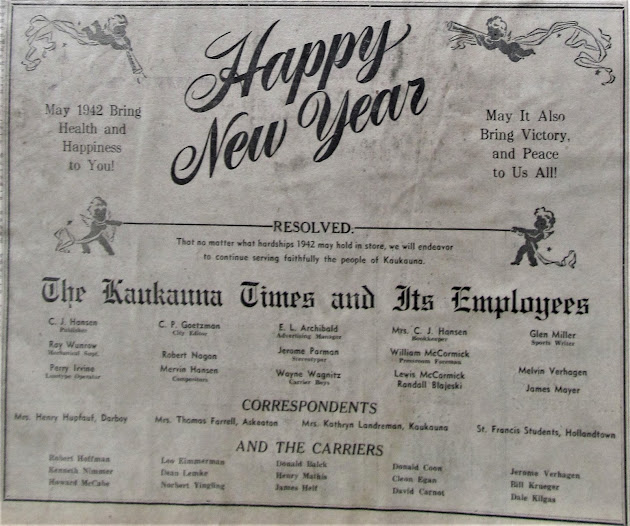 Happy
New Year
May 1942 Bring
Health and
Happiness
to You!
May It Also
Bring Victory,
and Peace
to Us All!
RESOLVED.
That no matter what hardships 1942 may hold in store, we will endeavor
to continue serving faithfully the people of Kaukauna.
The Kaukauna Times and Its Employees
C. J. Hansen
Publisher
Ray Wunrow
Mechanical Supt.
Perry Irvine
Linotype Operator
C. P. Goetzman
City Editor
Robert Nagan
Mervin Hansen
Compositors
E. L. Archibald
Advertising Manager
Jerome Parman
Stereotyper
Wayne Wagnitz
Carrier Boys
Mrs. C. J. Hansen
Bookkeeper
William McCormick
Pressroom Foreman
Lewis McCormick
Randall Blajeski
Glen Miller
Sports Writer
Melvin Verhagen
James Mayer
CORRESPONDENTS
Mrs. Henry Hopfauf, Darboy
Mrs. Thomas Farrell, Askeaton
Mrs. Kathryn Landreman, Kaukauna
St. Francis Students, Hollandtown
AND THE CARRIERS
Robert Hoffman
Kenneth Nimmer
Howard McCabe
Leo Rimmerman
Dean Lemke
Norbert Yingling
Donald Balck
Henry Mathis
James Heif
Donald Coon
Cleon Egan
David Carnot
Jerome Verhagen
Bill Krueger
Dale Kilgas